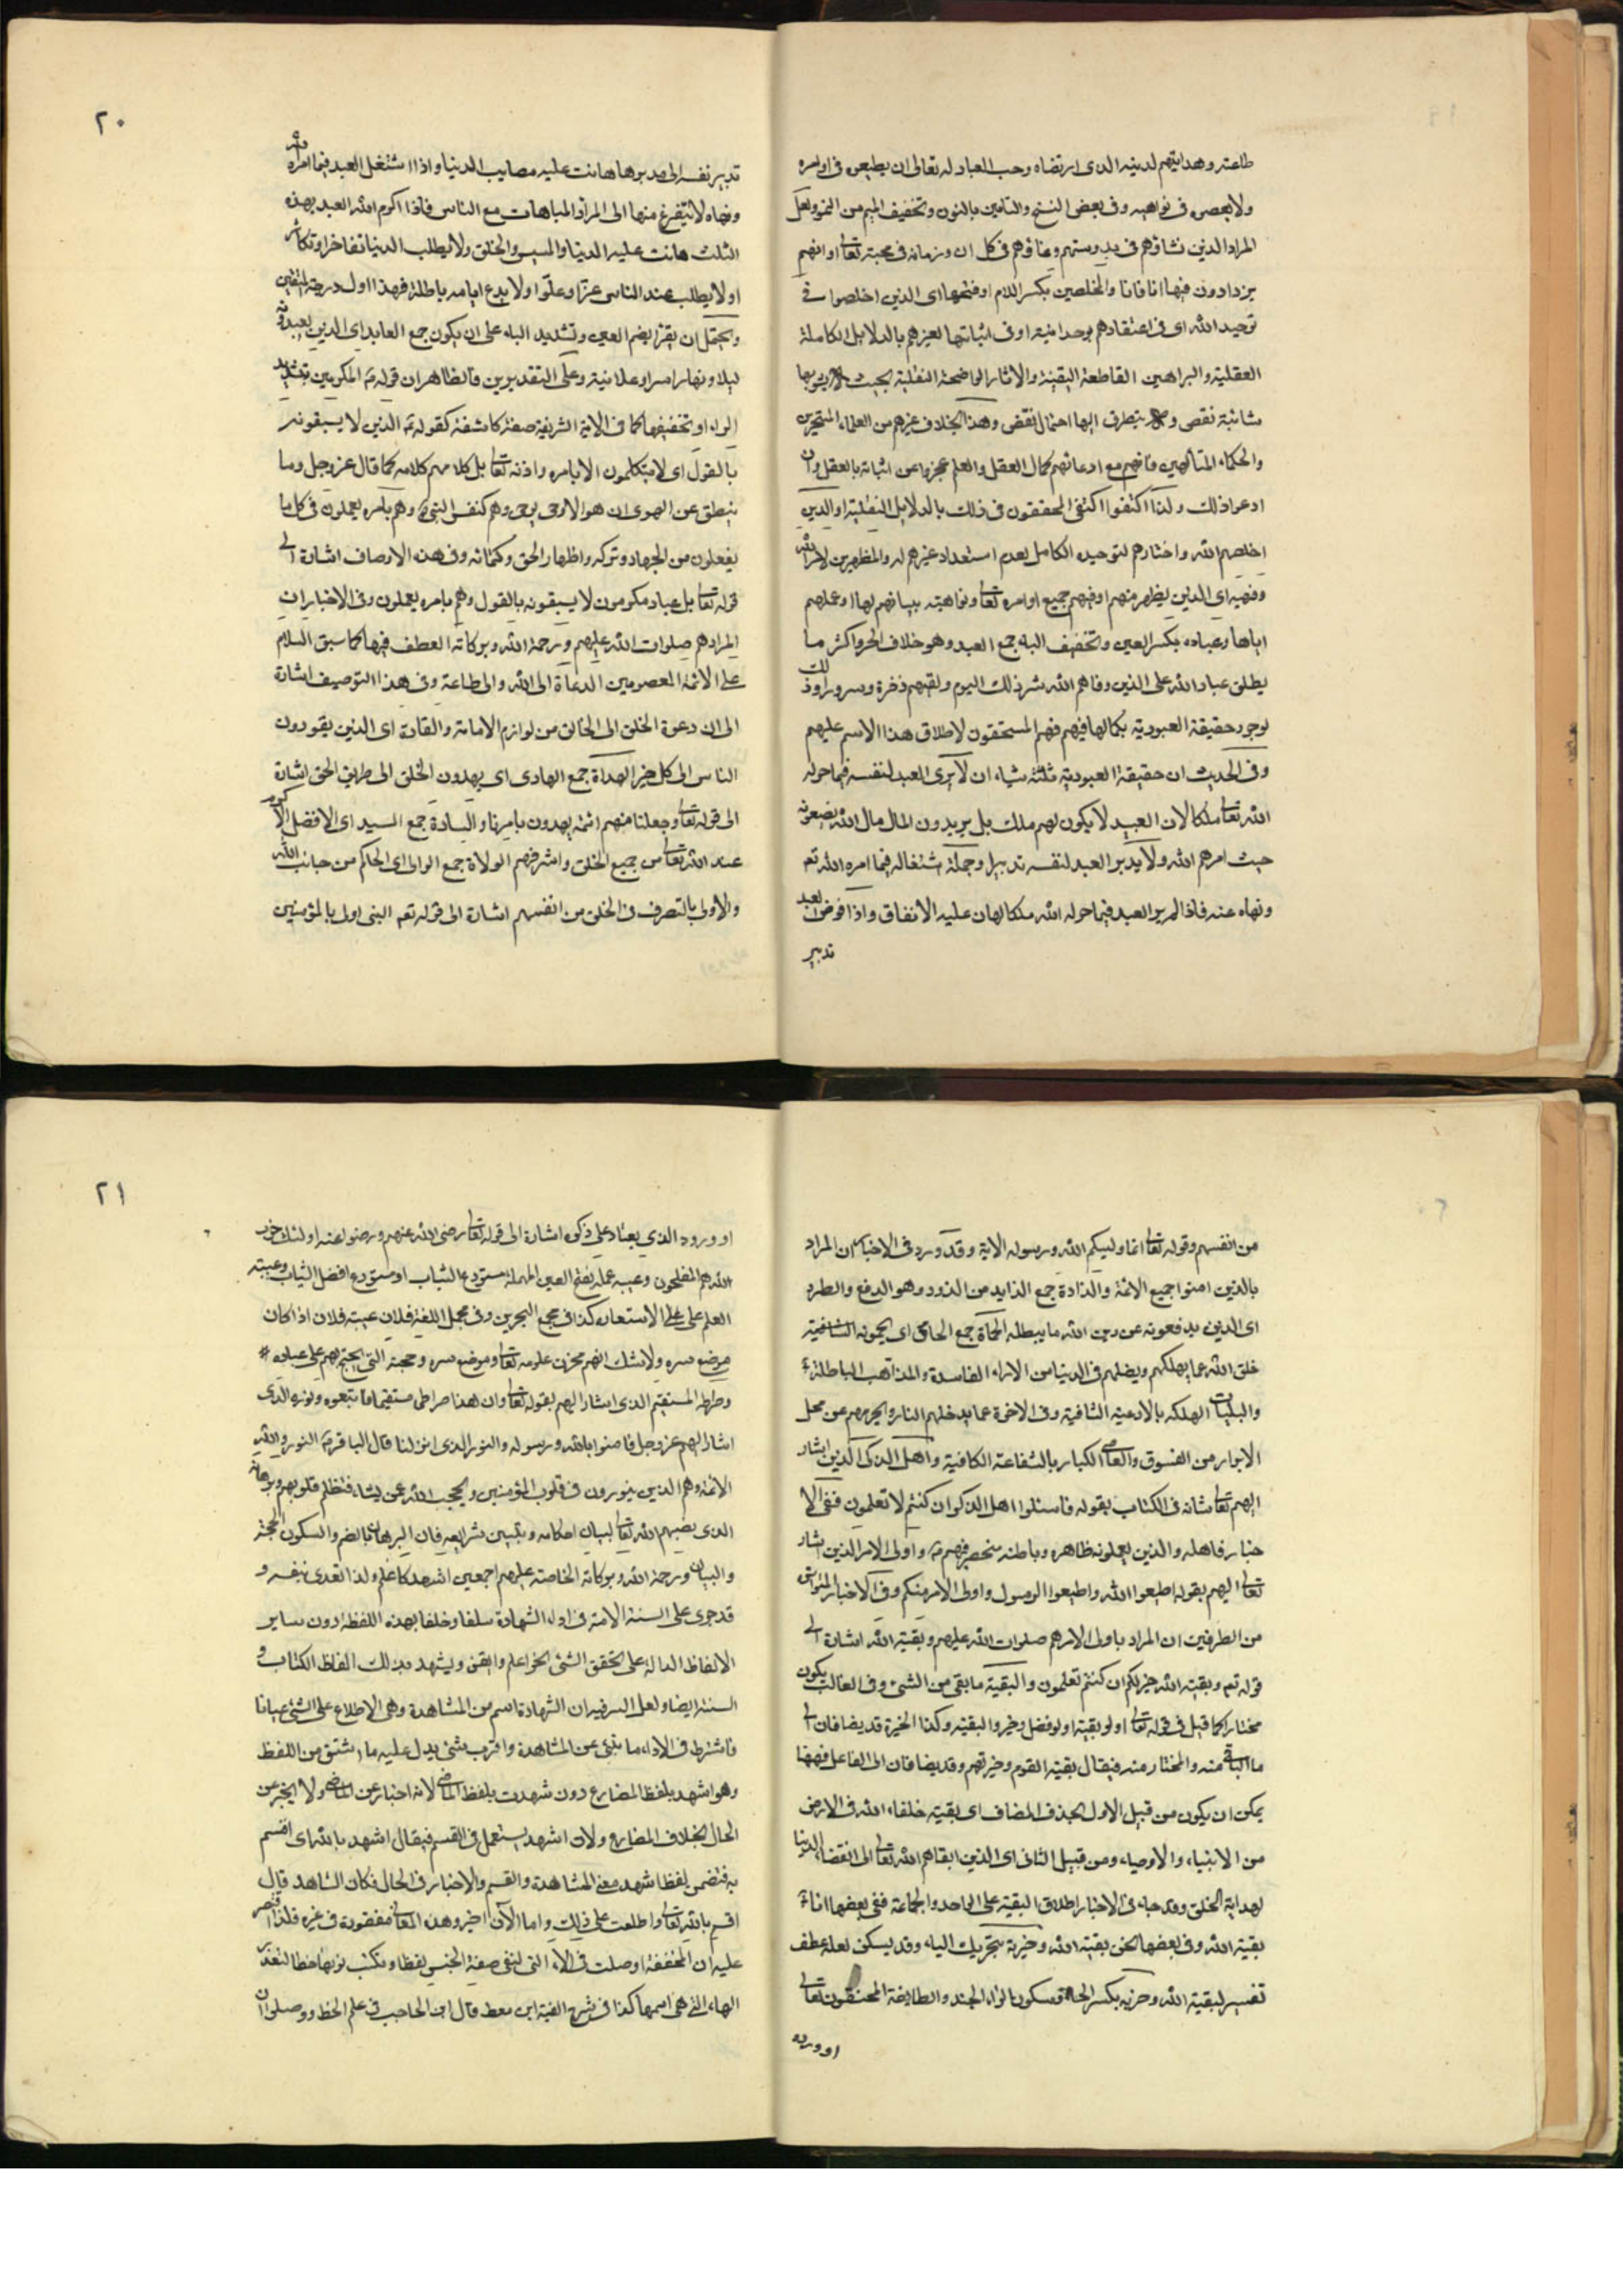 طاعته وهدايتهم لدينه الذى ارتضاه وحب العباد له تعالى ان يطيعوه فى اوامره
ولا يعصوه فى نواهيه وفى بعض النسخ والتامين بالنون وتخفيف الميم من النمو ولعل
المراد الذين نشاؤهم فى بدو سنهم ونماؤهم فى كل ان وزمانه فى محبته تعالى او انهم
يزدادون فيها انا فانا والمخلصين بكسر اللام او فتحها اى الذين اخلصوا فى
توحيد الله اى فى اعتقادهم بوحدانيته او فى اثباتها لغيرهم بالدلايل الكاملة
العقلية والبراهين القاطعة اليقينة والاثار الواضحة النقلية بحيث لا يشوبها
شائبة نقص ولا يتطرق اليها احتمال نقض وهذا بخلاف غيرهم من العلماء المتبحرين
والحكماء المتألهين فانهم مع ادعائهم كمال العقل والعلم عجزوا عن اثباته بالعقل وان
ادعوا ذلك ولذا اكتفوا اكتفى المحققون فى ذلك بالدلايل النقلية او الذين
اخلصهم الله واختارهم لتوحيده الكامل لعدم استعداد غيرهم له والمظهرين لامر الله
ونهيه اى الذين يظهر منهم او فيهم جميع اوامره تعالى ونواهيه ببيانهم لها او عملهم
اياها وعباده بكسر العين وتخفيف الباء جمع العبد وهو خلاف الحر واكثر ما
يطلق عباد الله على الذين وقاهم الله شر ذلك اليوم ولقيهم نضرة وسرورا وذلك
لوجود حقيقة العبودية بكمالها فيهم فهم المستحقون لاطلاق هذا الاسم عليهم
وفى الحديث ان حقيقة العبودية ثلثة اشياء ان لا يرى العبد لنفسه فيما خوله
الله تعالى ملكا لان العبيد لا يكون لهم ملك بل يريدون المال مال الله يضعونه
حيث امرهم الله ولا يدبر العبد لنفسه تدبيرا وجملة اشتغاله فيما امره الله تع
ونهاه عنه فاذا لم ير العبد فيما خوله الله ملكا لهان عليه الانفاق واذا فوض العبد
تدبير
٢٠
تدبير نفسه الى مدبرها هانت عليه مصايب الدنيا واذا اشتغل العبد فيما امره الله
ونهاه لا يتفرغ منها الى المراء والمباهات مع الناس فاذا اكرم الله العبد بهذه
الثلث هانت عليه الدنيا وابليس والخلق ولا يطلب الدنيا تفاخرا وتكاثرا
او لا يطلب عند الناس عزا وعلوا ولا يدع ايامه باطلة فهذا اول درجة المتقين
ويحتمل ان يقرأ بضم العين وتشديد الباء على ان يكون جمع العابد اى الذين يعبدونه
ليلا ونهارا سرا وعلانية وعلى التقديرين فالظاهر ان قوله ع المكرمين بتشديد
الراء او تخفيفها كما فى الاية الشريفة صفة كاشفة كقوله ع الذين لا يسبقونه
بالقول اى لا يتكلمون الا بامره واذنه تعالى بل كلامهم كلامه كما قال عز وجل وما
ينطق عن الهوى ان هو الا وحى يوحى وهم كنفس النبى ص وهم بامره يعملون فى كل ما
يفعلون من الجهاد وتركه واظهار الحق وكتمانه وفى هذه الاوصاف اشارة الى
قوله تعالى بل عباد مكرمون لا يسبقونه بالقول وهم بامره يعملون وفى الاخبار ان
المراد هم صلوات الله عليهم ورحمة الله وبركاته العطف فيها كما سبق السلام
على الائمة المعصومين الدعاة الى الله والى طاعته وفى هذا التوصيف اشارة
الى ان دعوة الخلق الى الخالق من لوازم الامامة والقادة اى الذين يقودون
الناس الى كل خير الهداة جمع الهادى اى يهدون الخلق الى طريق الحق اشارة
الى قوله تعالى وجعلنا منهم ائمة يهدون بامرنا والسادة جمع السيد اى الافضل الاكرم
عند الله تعالى من جميع الخلق واشرفهم الولاة جمع الوالى اى الحاكم من جانب الله
والاولى بالتصرف فى الخلق من انفسهم اشارة الى قوله تعم النبى اولى بالمؤمنين
من انفسهم وقوله تعالى انما وليكم الله ورسوله الاية وقد ورد فى الاخبار ان المراد
بالذين امنوا جميع الائمة والذادة جمع الذايد من الذود وهو الدفع والطرد
اى الذين يدفعونه عن دين الله ما يبطله الحماة جمع الحامى اى يحمونه
خلق الله عما يهلكهم ويضلهم فى الدنيا من الاراء الفاسدة والمذاهب الباطلة
والبليات المهلكه بالادعية الشافية وفى الاخرة عما يدخلهم النار ويحرمهم عن محل
الابرار من الفسوق والمعاصى الكبار بالشفاعة الكافية واهل الذكر الذين اشار
اليهم تعالى شانه فى الكتاب بقوله فاسئلوا اهل الذكر ان كنتم لا تعلمون ففى الا
خبار فاهله والذين يعملونه ظاهره وباطنه منحصر فيهم ع واولى الامر الذين اشار
تعالى اليهم بقوله اطيعوا الله واطيعوا الرسول واولى الامر منكم وفى الاخبار المتواتر
من الطرفين ان المراد باولى الامر هم صلوات الله عليهم وبقية الله اشارة الى
قوله تعم وبقية الله خير لكم ان كنتم تعلمون والبقية ما بقى من الشىء وفى الغالب يكون
مختارا كما قيل فى قوله تعالى اولو بقية اولو فضل وخير والبقية وكذا الخيرة قد يضافان الى
ما الباقى منه والمختار منه فيقال بقية القوم وخيرتهم وقد يضافان الى الفاعل فههنا
يمكن ان يكون من قبيل الاول بحذف المضاف اى بقية خلفاء الله فى الارض
من الانبياء والاوصياء ومن قبيل الثانى اى الذين ابقاهم الله تعالى الى انقضاء الدنيا
لهداية الخلق وقد جاء فى الاخبار اطلاق البقية على الواحد والجماعة ففى بعضها انا
بقية الله وفى بعضها نحن بقية الله وخيرته بتحريك الياء وقد يسكن لعله عطف
تفسير لبقية الله وحزبه بكسر الحاء وسكون الزاء الجند والطايفة المحقون تعالى
او ورود
٢١
او ورود الذى يعتاد على ذكره اشارة الى قوله تعالى رضى الله عنهم ورضوا عنه اولئك حزب
الله هم المفلحون وعيبه علمه بفتح العين المهملة مستودع الثياب او مستودع افضل الثياب وعيبة
العلم على الاستعارة كذا فى مجمع البحرين وفى مجمل اللغة فلان عيبة فلان اذا كان
موضع سره ولا شك انهم مخزن علومه تعالى وموضع سره وحجته التى يحتج بهم على عباده
وصراطه المستقيم الذى اشار اليهم بقوله تعالى وان هذا صراطى مستقيما فاتبعوه ونوره الذى
اشار اليهم عز وجل فامنوا بالله ورسوله والنور الذى انزلنا قال الباقر ع النور والله
الائمة وهم الذين ينورون فى قلوب المؤمنين ويحجب الله عن يشاء فتظلم قلوبهم وبرهانه
الذى نصبهم الله تعالى لبيان احكامه وتبيين شرايعه فان البرهان بالضم والسكون الحجة
والبيان ورحمة الله وبركاته الخاصة عليهم اجمعين اشهد كاعلم ولذا تعدى بنفسه و
قد جرى على السنة الامة فى اداء الشهادة سلفا وخلفا بهذه اللفظة دون ساير
الالفاظ الدالة على تحقق الشئ نحو اعلم وايقن ويشهد بذلك الفاظ الكتاب و
السنة ايضا ولعل السر فيه ان الشهادة اسم من المشاهدة وهى الاطلاع على الشئ عيانا
فاشترط فى الاداء ما ينبئ عن المشاهدة واقرب شئ يدل عليه ما اشتق من اللفظ
وهو اشهد بلفظ المضارع دون شهدت بلفظ الماضى لانه اخبار عن الماضى ولا يخبر عن
الحال بخلاف المضارع ولان اشهد يستعمل فى القسم فيقال اشهد بالله اى اقسم
به فتضمن لفظ اشهد معنى المشاهدة والقسم والاخبار فى الحال فكان الشاهد قال
اقسم بالله تعالى واطلعت على ذلك واما الآن اخبر وهذه المعانى مفقودة فى غيره فلذا اقتصر
عليه ان المخففة اوصلت فى الا التى لنفى صفة الجنس لفظا وتكتب نونها خطا لتعذر
الهاء التى هى اسمها كذا فى شرح الفية ابن معط قال ابن الحاجب فى علم الخط ووصلوا ان